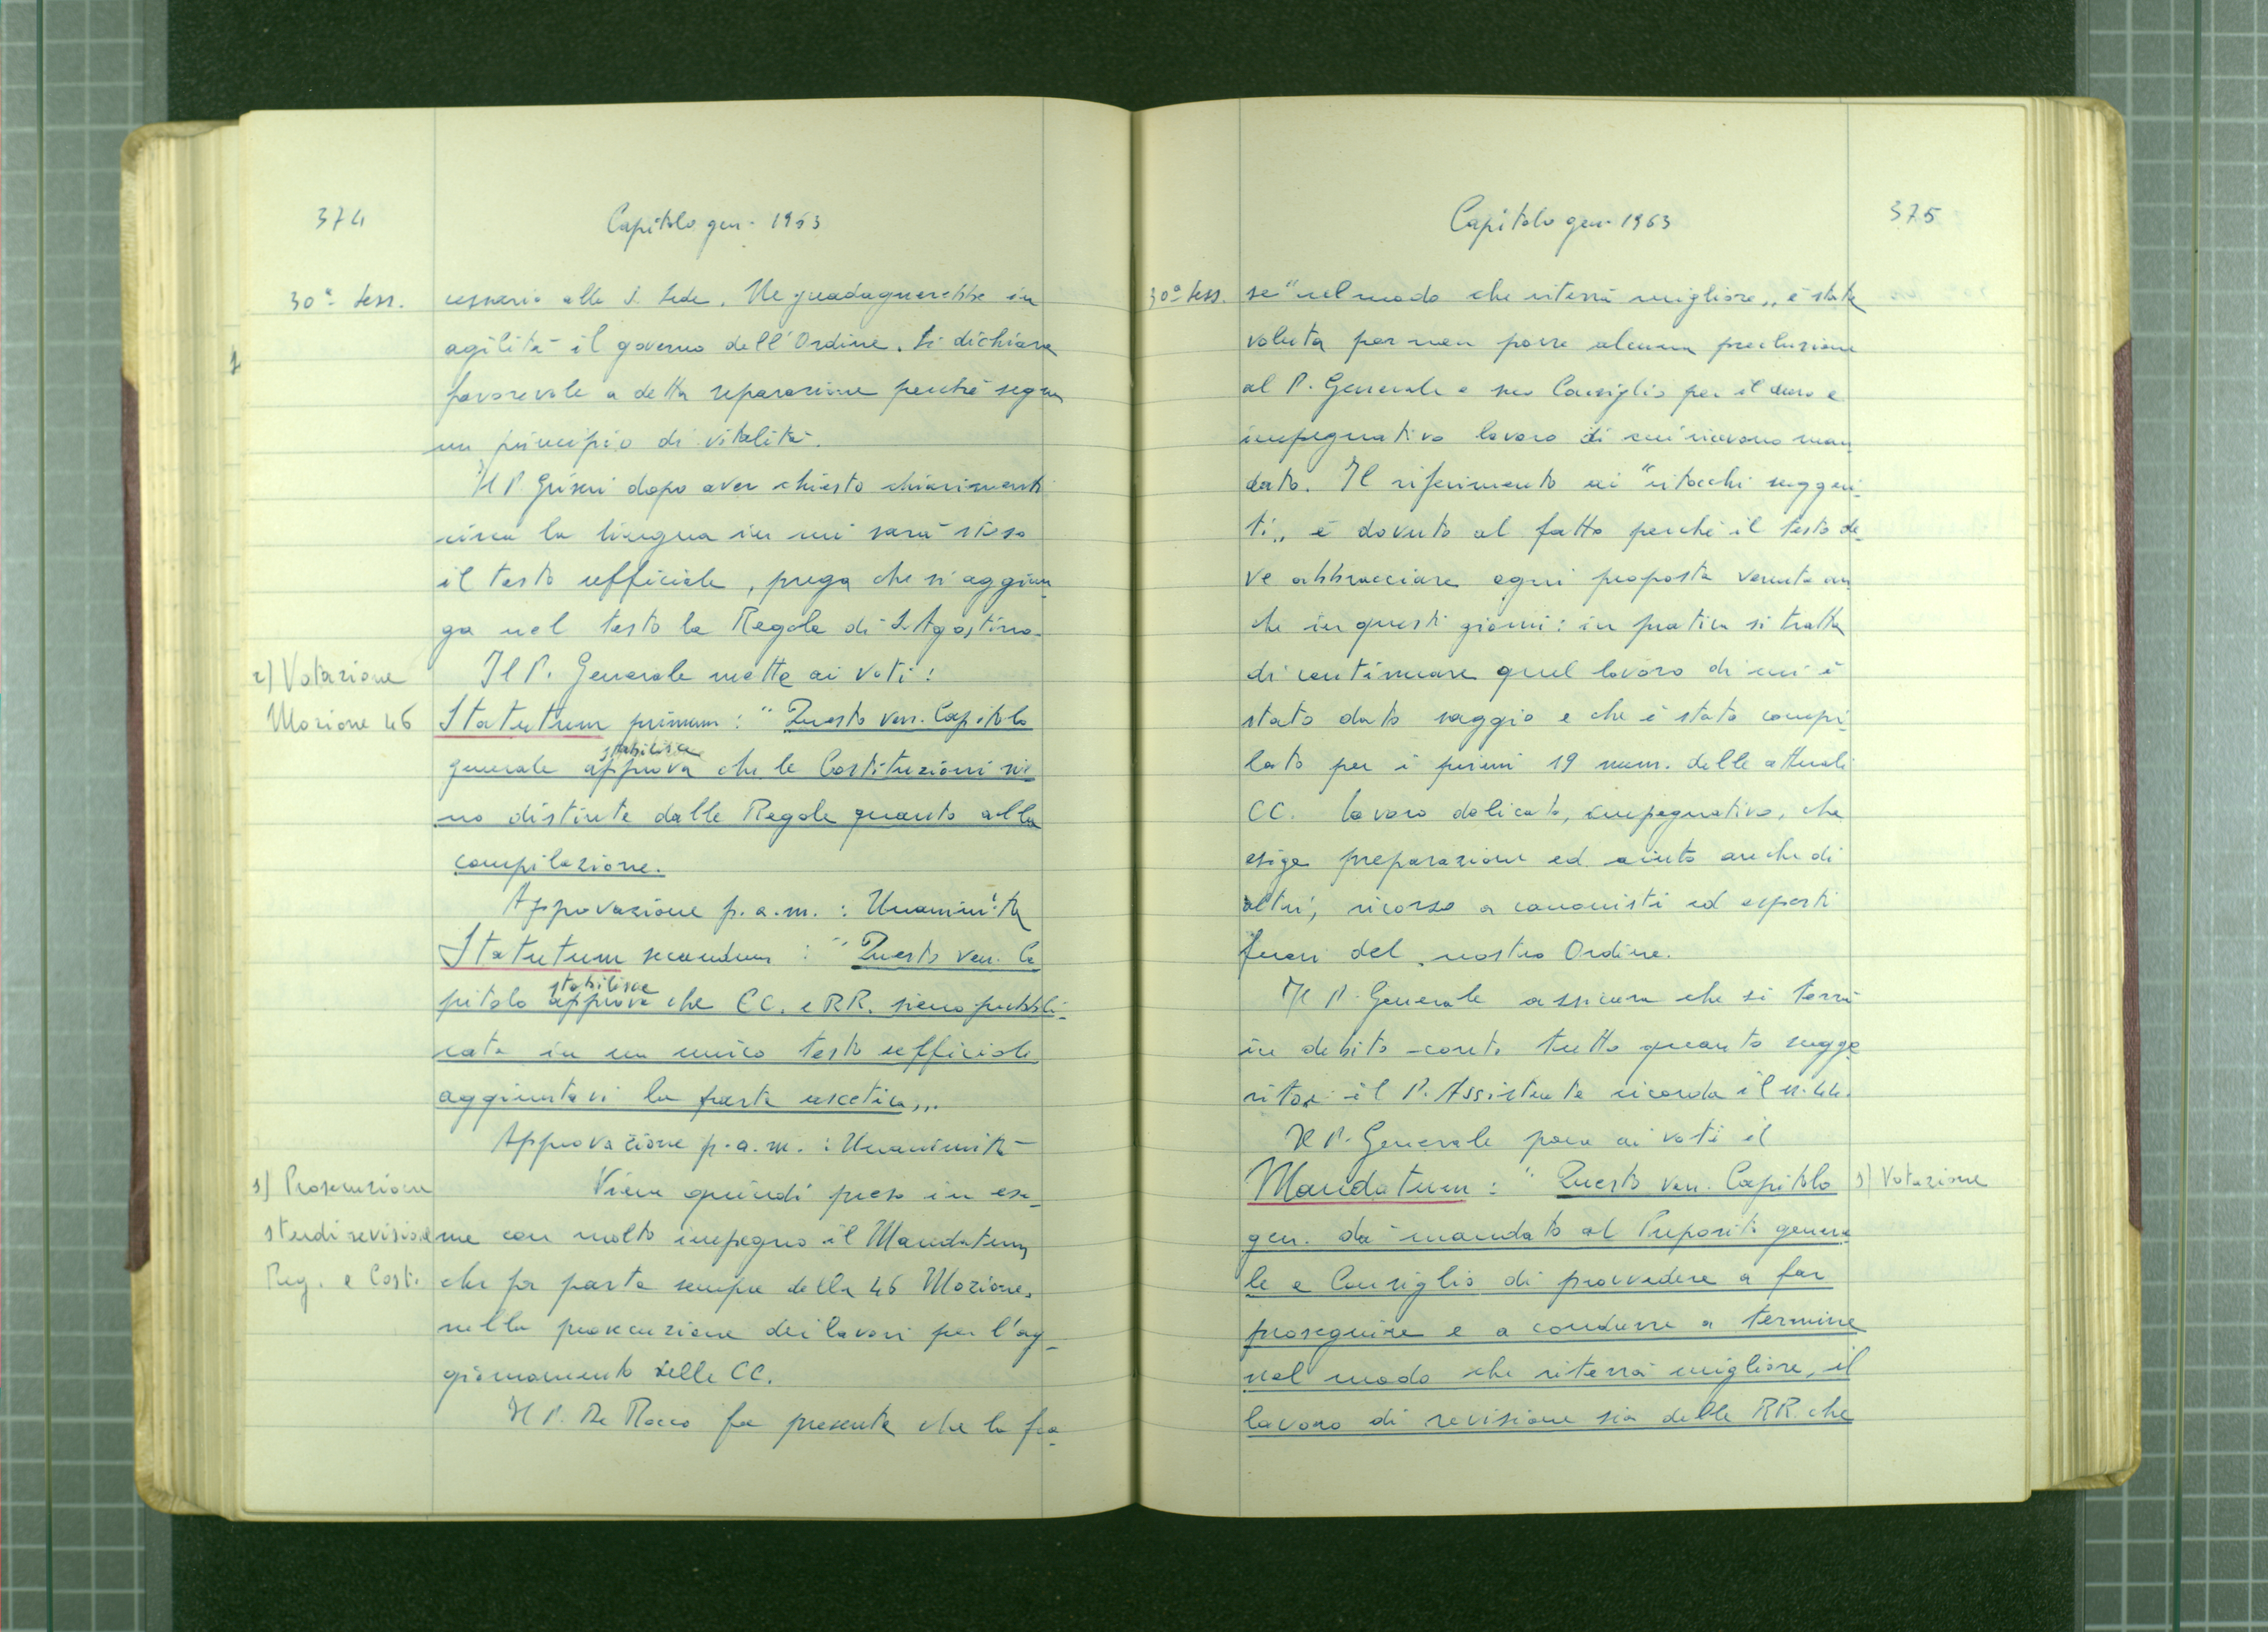 374
Capitolo gen. 1963
30ª Sess.
cessario alla S. Sede. Ne guadagnerebbe in
agilità il governo dell'Ordine. Si dichiara
favorevole a detta separazione perché segna
un principio di vitalità.
Il P. Griseri dopo aver chiesto chiarimenti
circa la lingua in cui sarà steso
il testo ufficiale, prega che si aggiun
ga nel testo la Regola di S. Agostino.
r) Votazione
Mozione 46
Il P. Generale mette ai voti:
Statutum primum: "Questo ven. Capitolo
stabilisce
generale approva che le Costituzioni sia
no distinte dalle Regole quanto alla
compilazione.
Approvazione p.a.m.: Unanimità
Statutum secundum: "Questo ven. Ca
stabilisce
pitolo approva che CC. e RR. siano pubbli-
cate in un unico testo ufficiale
aggiuntavi la parte ascetica„.
Approvazione p.a.m.: Unanimità
s) Prosecuzione
studi revisione
Reg. e Cost.
Viene quindi preso in esa-
me con molto impegno il Mandatum
che fa parte sempre della 46 Mozione,
nella prosecuzione dei lavori per l'ag-
giornamento delle CC.
Il P. De Rocco fa presente che la fra-
Capitolo gen. 1963
375
30ª Sess.
se "nel modo che riterrà migliore„ è stata
voluta per non porre alcuna preclusione
al P. Generale e suo Consiglio per il duro e
impegnativo lavoro di cui ricevono man
dato. Il riferimento ai "ritocchi suggeri-
ti„ è dovuto al fatto perché il testo de-
ve abbracciare ogni proposta venuta an
che in questi giorni: in pratica si tratta
di continuare quel lavoro di cui è
stato dato saggio e che è stato compi-
lato per i primi 19 num. delle attuali
CC. lavoro delicato, impegnativo, che
esige preparazione ed aiuto anche di
altri, ricorso a canonisti ed esperti
fuori del nostro Ordine.
Il P. Generale assicura che si terrà
in debito conto tutto quanto sugge
rito: il P. Assistente ricorda il n. 44.
Il P. Generale pone ai voti il
Mandatum: "Questo ven. Capitolo
s) Votazione
gen. dà mandato al Preposito genera
le e Consiglio di provvedere a far
proseguire e a condurre a termine
nel modo che riterrà migliore, il
lavoro di revisione sia delle RR. che